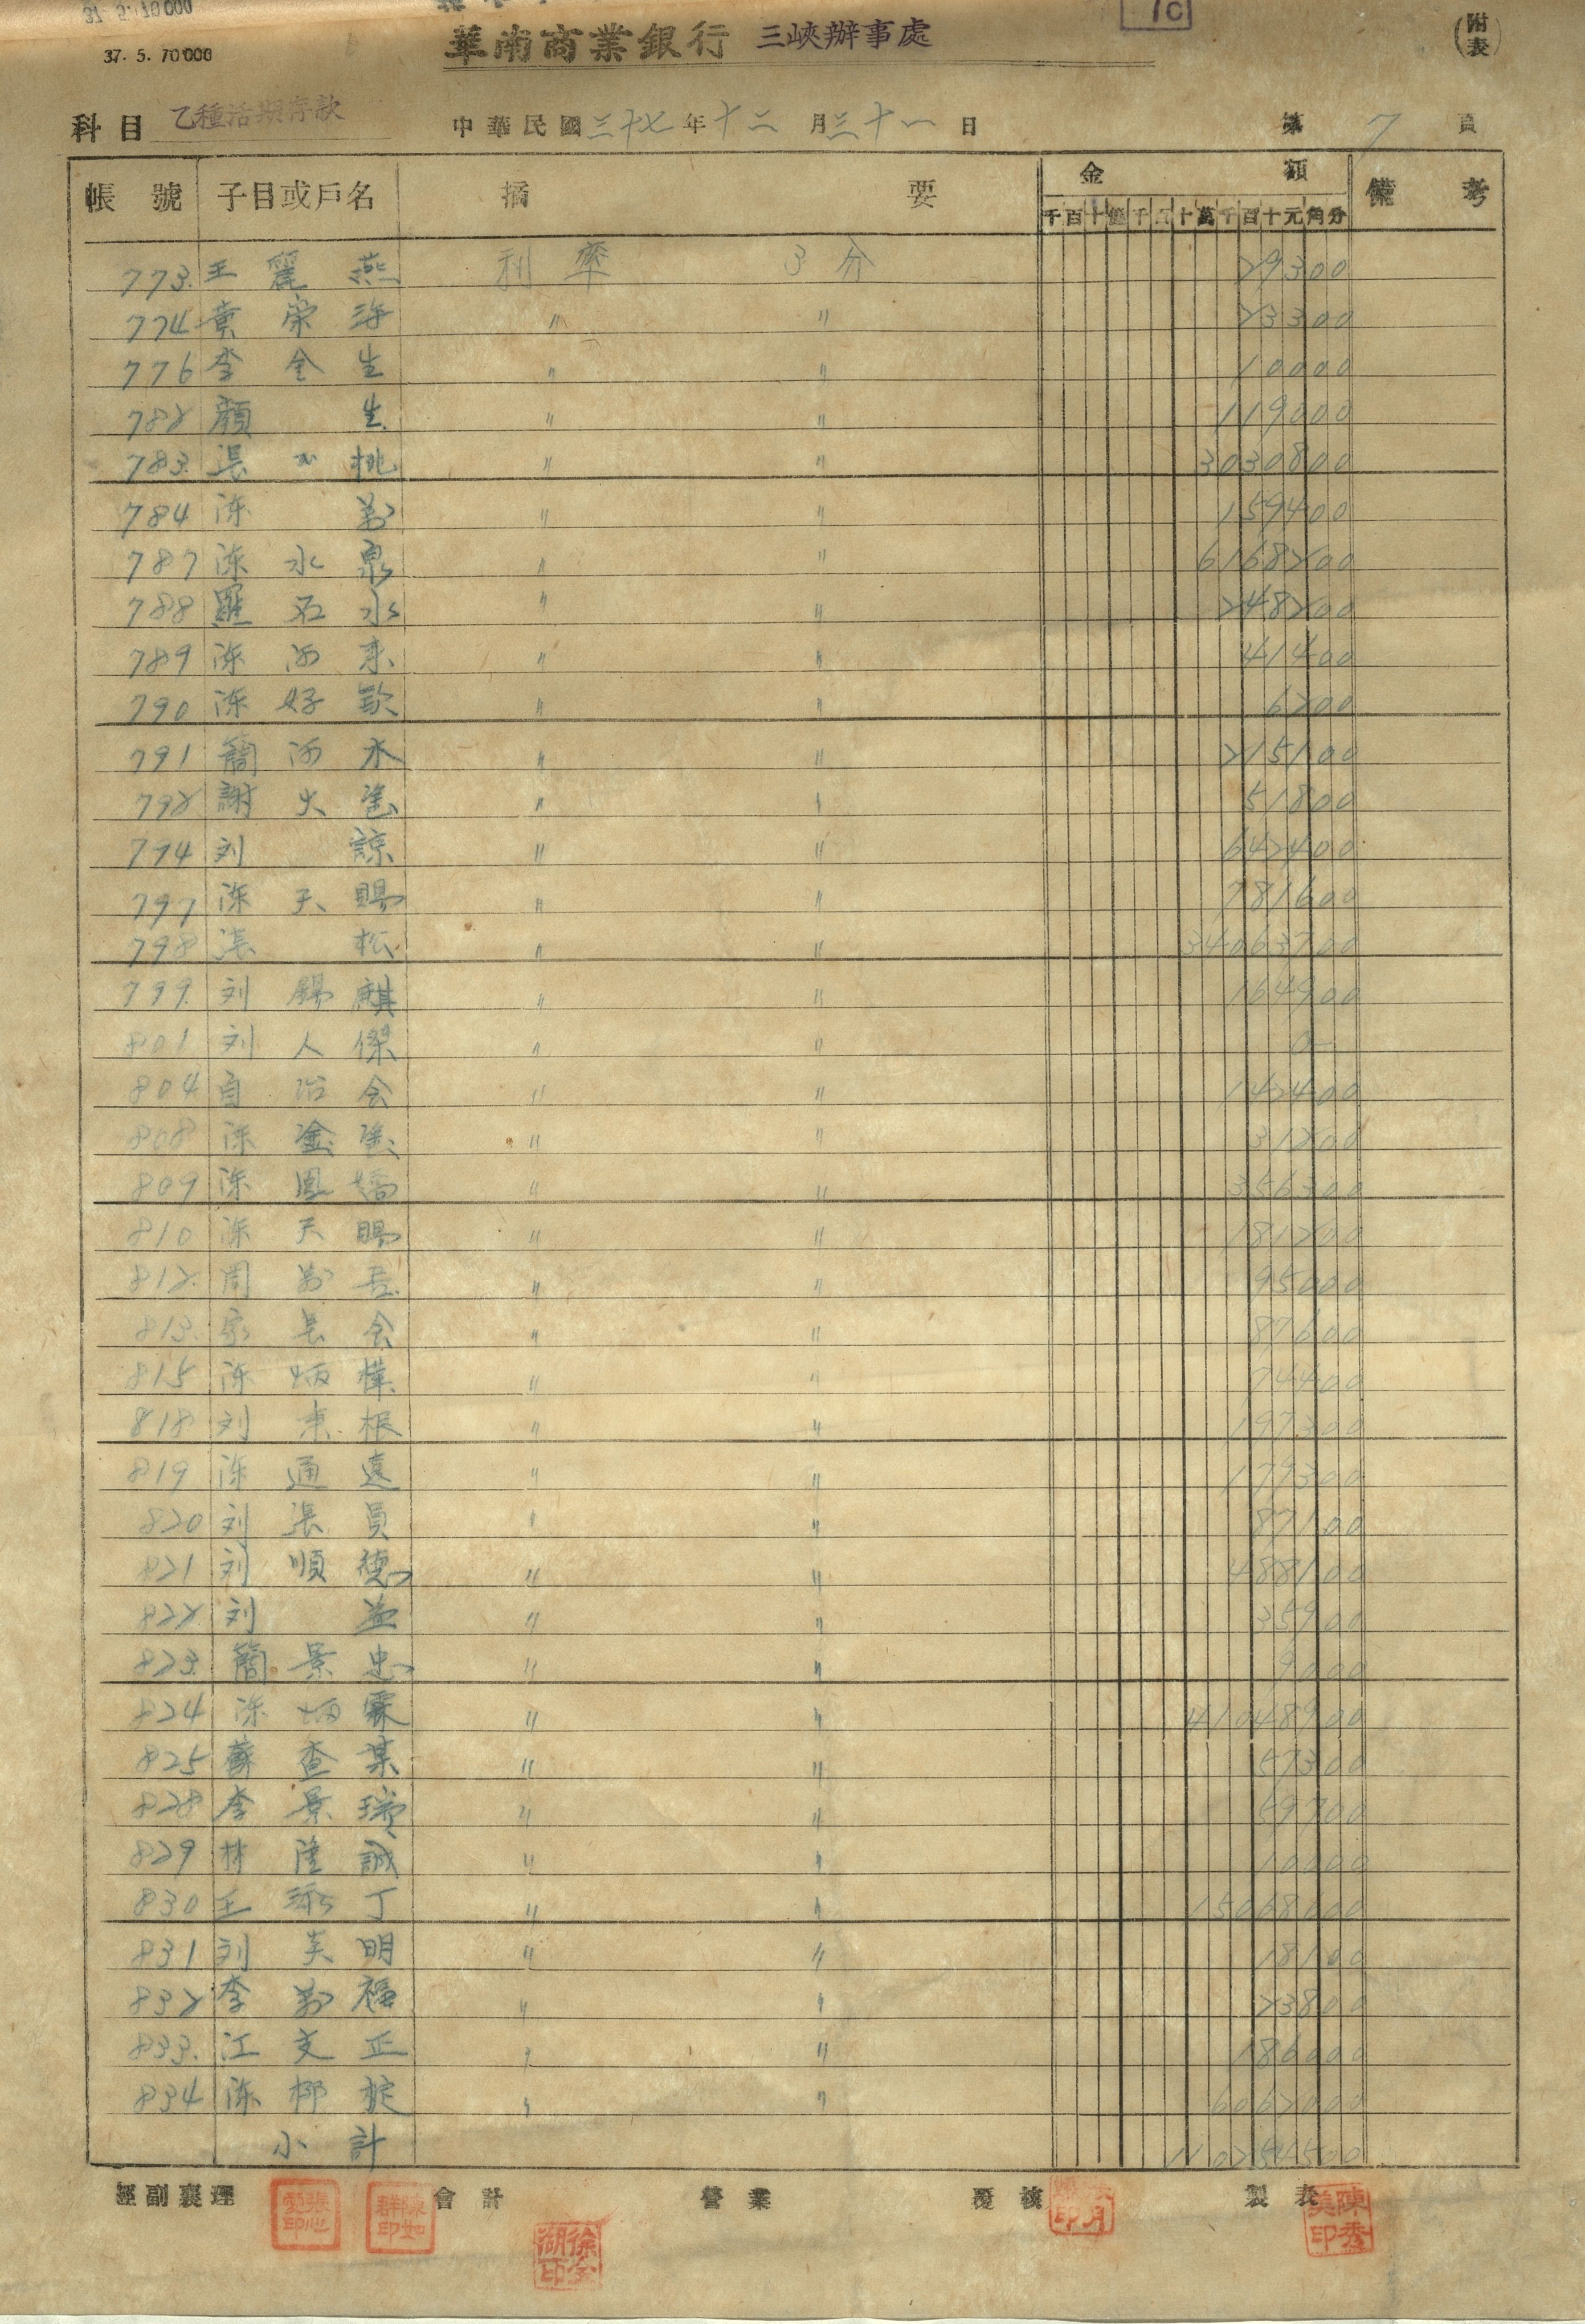 37. 5. 70000
37. 5. 70000
華南商業銀行 三峽辦事處
(附表)
科目 乙種活期存款 中華民國三十七年十二月三十一日 第7頁
帳號 子目或戶名 摘要 金額 備考
千百十億千百十萬千百十元角分
773 王麗燕 利率 3分 29300
774 黃榮海 〃 〃 23300
776 李金生 〃 〃 10000
782 顏生 〃 〃 119000
783 張 桃 〃 〃 3030800
784 陈萬 〃 〃 159400
787 陈水泉 〃 〃 6168200
788 羅石水 〃 〃 248200
789 陈 来 〃 〃 41400
790 陈好歎 〃 〃 6200
791 簡 水 〃 〃 215100
792 謝火塗 〃 〃 51800
794 刘諒 〃 〃 642400
797 陈天賜 〃 〃 781600
798 張松 〃 〃 34063700
799 刘錫麒 〃 〃 164900
801 刘人傑 〃 〃 0
804 自治会 〃 〃 142400
808 陈 塗 〃 〃 31200
809 陈鳳嬌 〃 〃 356300
810 陈天賜 〃 〃 181200
812 周萬吾 〃 〃 95000
813 家長会 〃 〃 87600
815 陈炳樺 〃 〃 74400
818 刘来根 〃 〃 197300
819 陈通遠 〃 〃 179300
820 刘張員 〃 〃 87100
821 刘順德 〃 〃 488100
822 刘益 〃 〃 35900
823 簡景忠 〃 〃 9000
824 陈炳霖 〃 〃 41048900
825 蘇查某 〃 〃 57300
828 李景瑞 〃 〃 59700
829 林隆誠 〃 〃 10000
830 王添丁 〃 〃 15068000
831 刘英明 〃 〃 18100
832 李萬福 〃 〃 23800
833 江文正 〃 〃 186000
834 陈柳 〃 〃 6062000
小計 110254500
經副襄理 會計 營業 覆核 製表
陳秀美印